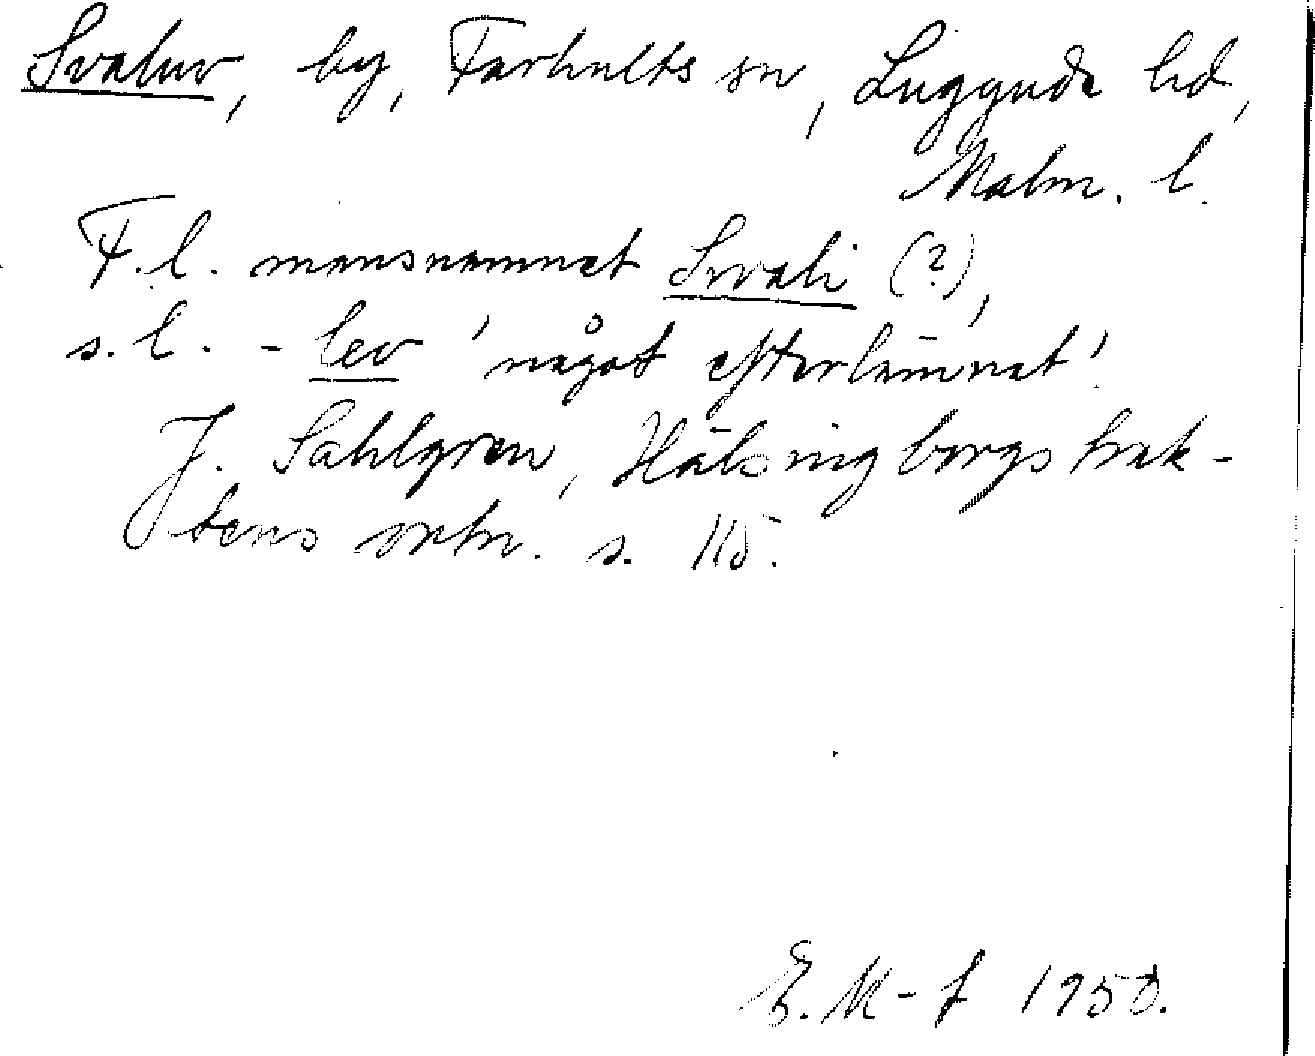 Svaluv, by, Farhults sn, Luggude hd,
Malm. l.
F.l. mansnamnet Svali (?),
s.l. -lev 'något efterlämnat'.
J. Sahlgren, Hälsingborgstrak-
tens ortn. s. 115.
E. K-f 1950.